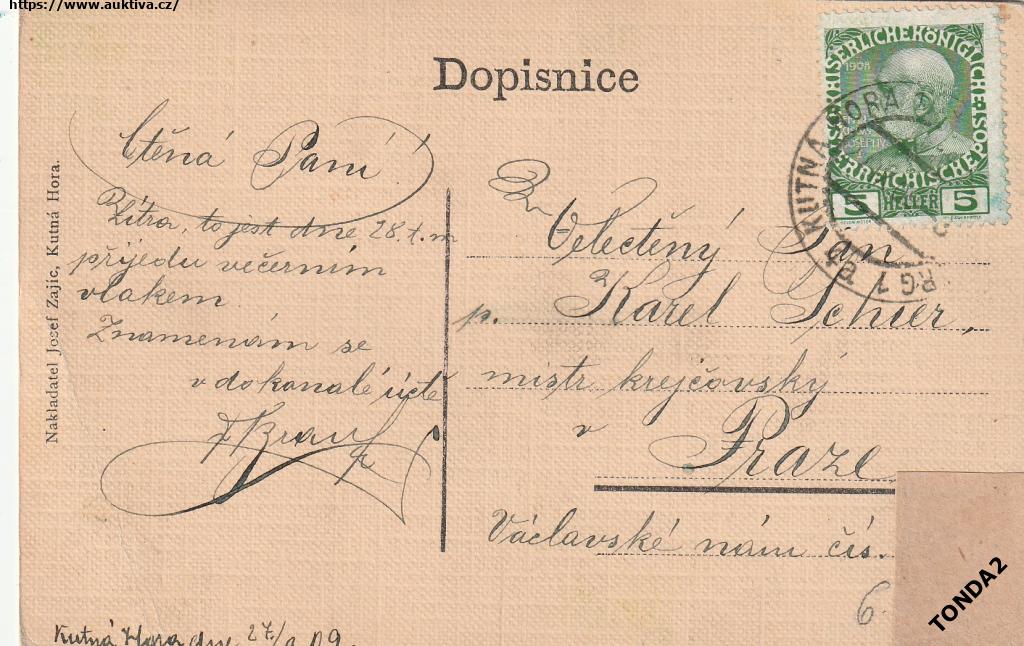 https://www.auktiva.cz/
Dopisnice
KAISERLICHEKÖNIGLICHE POST
1908
ÖSTERREICHISCHE
5 HELLER 5
KUTNÁ HORA
Nakladatel Josef Zajíc, Kutná Hora.
Ctěná Paní!
Zítra, to jest dne 28. t. m
přijedu večerním
vlakem.
Znamenám se
v dokonalé úctě
Velectěný Pán
p. Karel Schier,
mistr krejčovský
v
Praze
Václavské nám čís.
6
Kutná Hora dne 27/ 09.
TONDA2